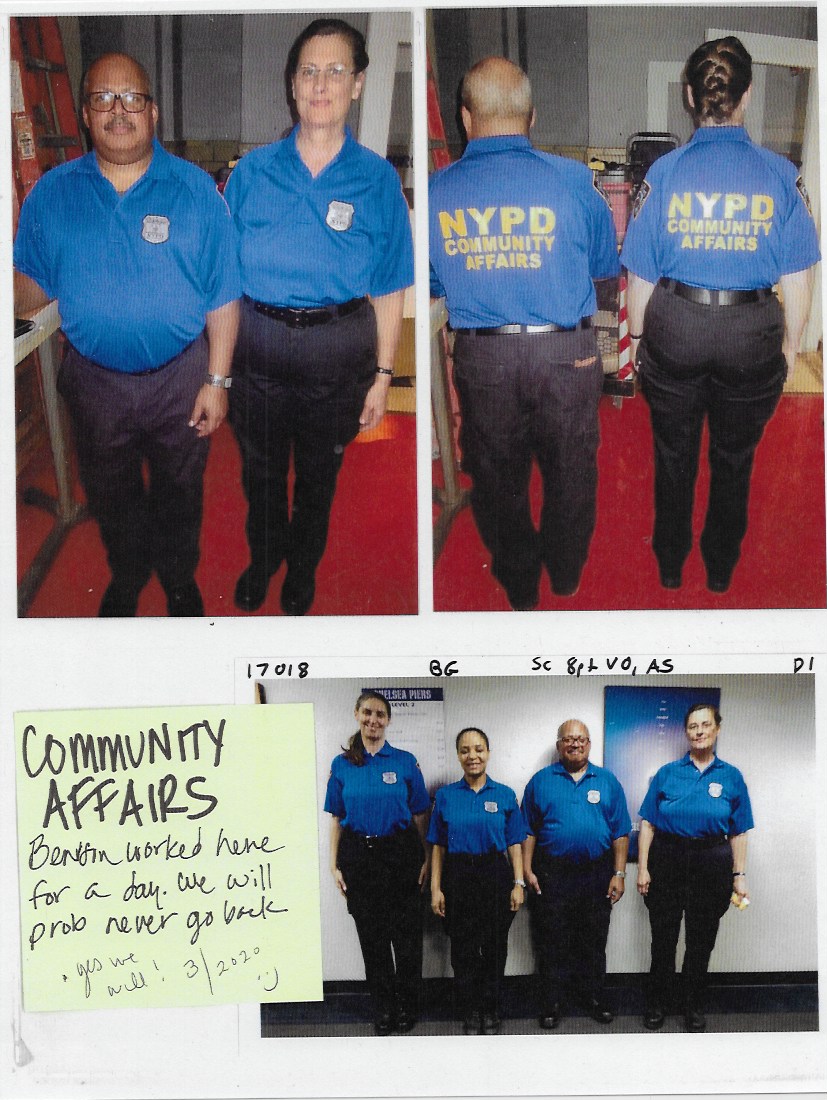 NYPD
COMMUNITY
AFFAIRS
NYPD
COMMUNITY
AFFAIRS
17018 BG Sc 8pt VO, AS D1
CHELSEA PIERS
LEVEL 2
COMMUNITY
AFFAIRS
Benson worked here
for a day. We will
prob never go back
. yes we
will! 3/2020
:)